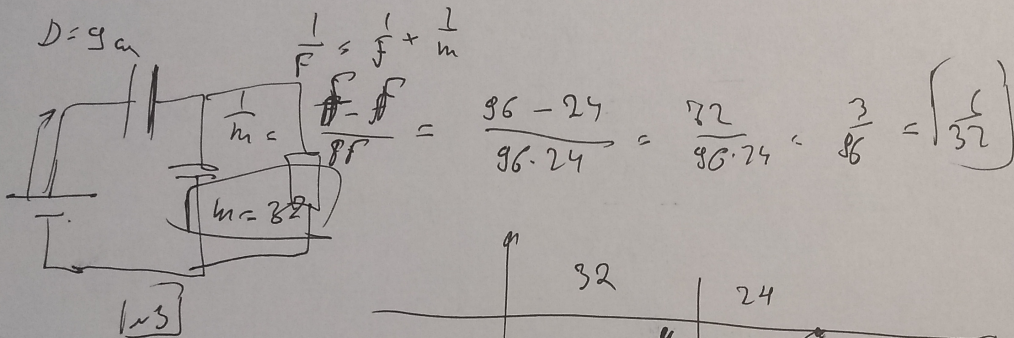 D = 9 cm
1/F = 1/f + 1/m
1/m = = 96 - 24 / 96·24 = 72 / 96·24 = 3/96 = 1/32
m = 32
32
24